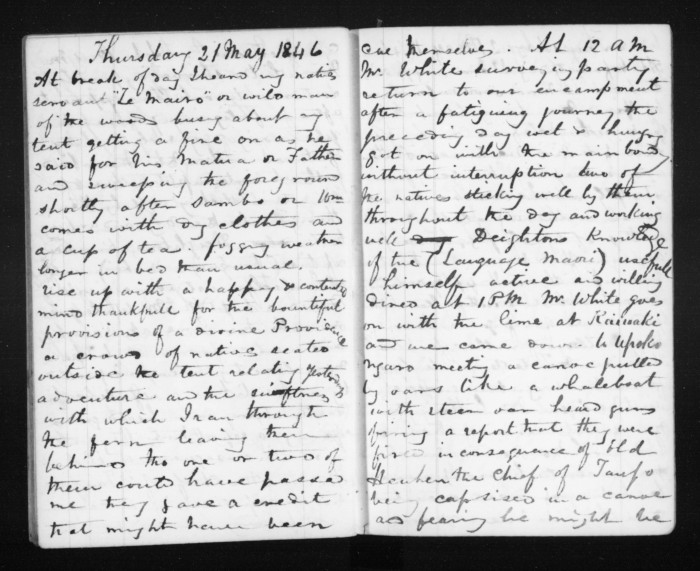 Thursday 21 May 1846
At break of day I heard my native
servant "Te Mairo" or wild man
of the woods busy about my
tent getting a fire on as he
said for his Matua or Father
and sweeping the foreground
shortly after Sambo or Tom
comes with my clothes and
a cup of tea. foggy weather
longer in bed than usual.
rise up with a happy & contented
mind thankfull for the bountiful
provisions of a divine Providence
a crowd of natives seated
outside the tent relating yesterdays
adventure and the swiftness
with which I ran through
the fern leaving them
behind tho one or two of
them could have passed
me they gave a credit
that might never been
themselves. At 12 AM
Mr. White surveying party
return to our encampment
after a fatiguing journey the
preceding day wet & hungry
got on with the main body
without interruption two of
the natives sticking well by them
throughout the day and working
well Deightons knowledge
of the (Language Maori) usefull
himself active and willing
dined at 1 PM Mr. White goes
on with the line at Kaiwaki
and we came down to Upoko
ngaro meeting a canoe pulled
by oars like a whaleboat
with steer oar heard guns
firing a report that they were
fired in consequence of Old
Heuheu the Chief of Taupo
being capsised in a canoe
and fearing he might be